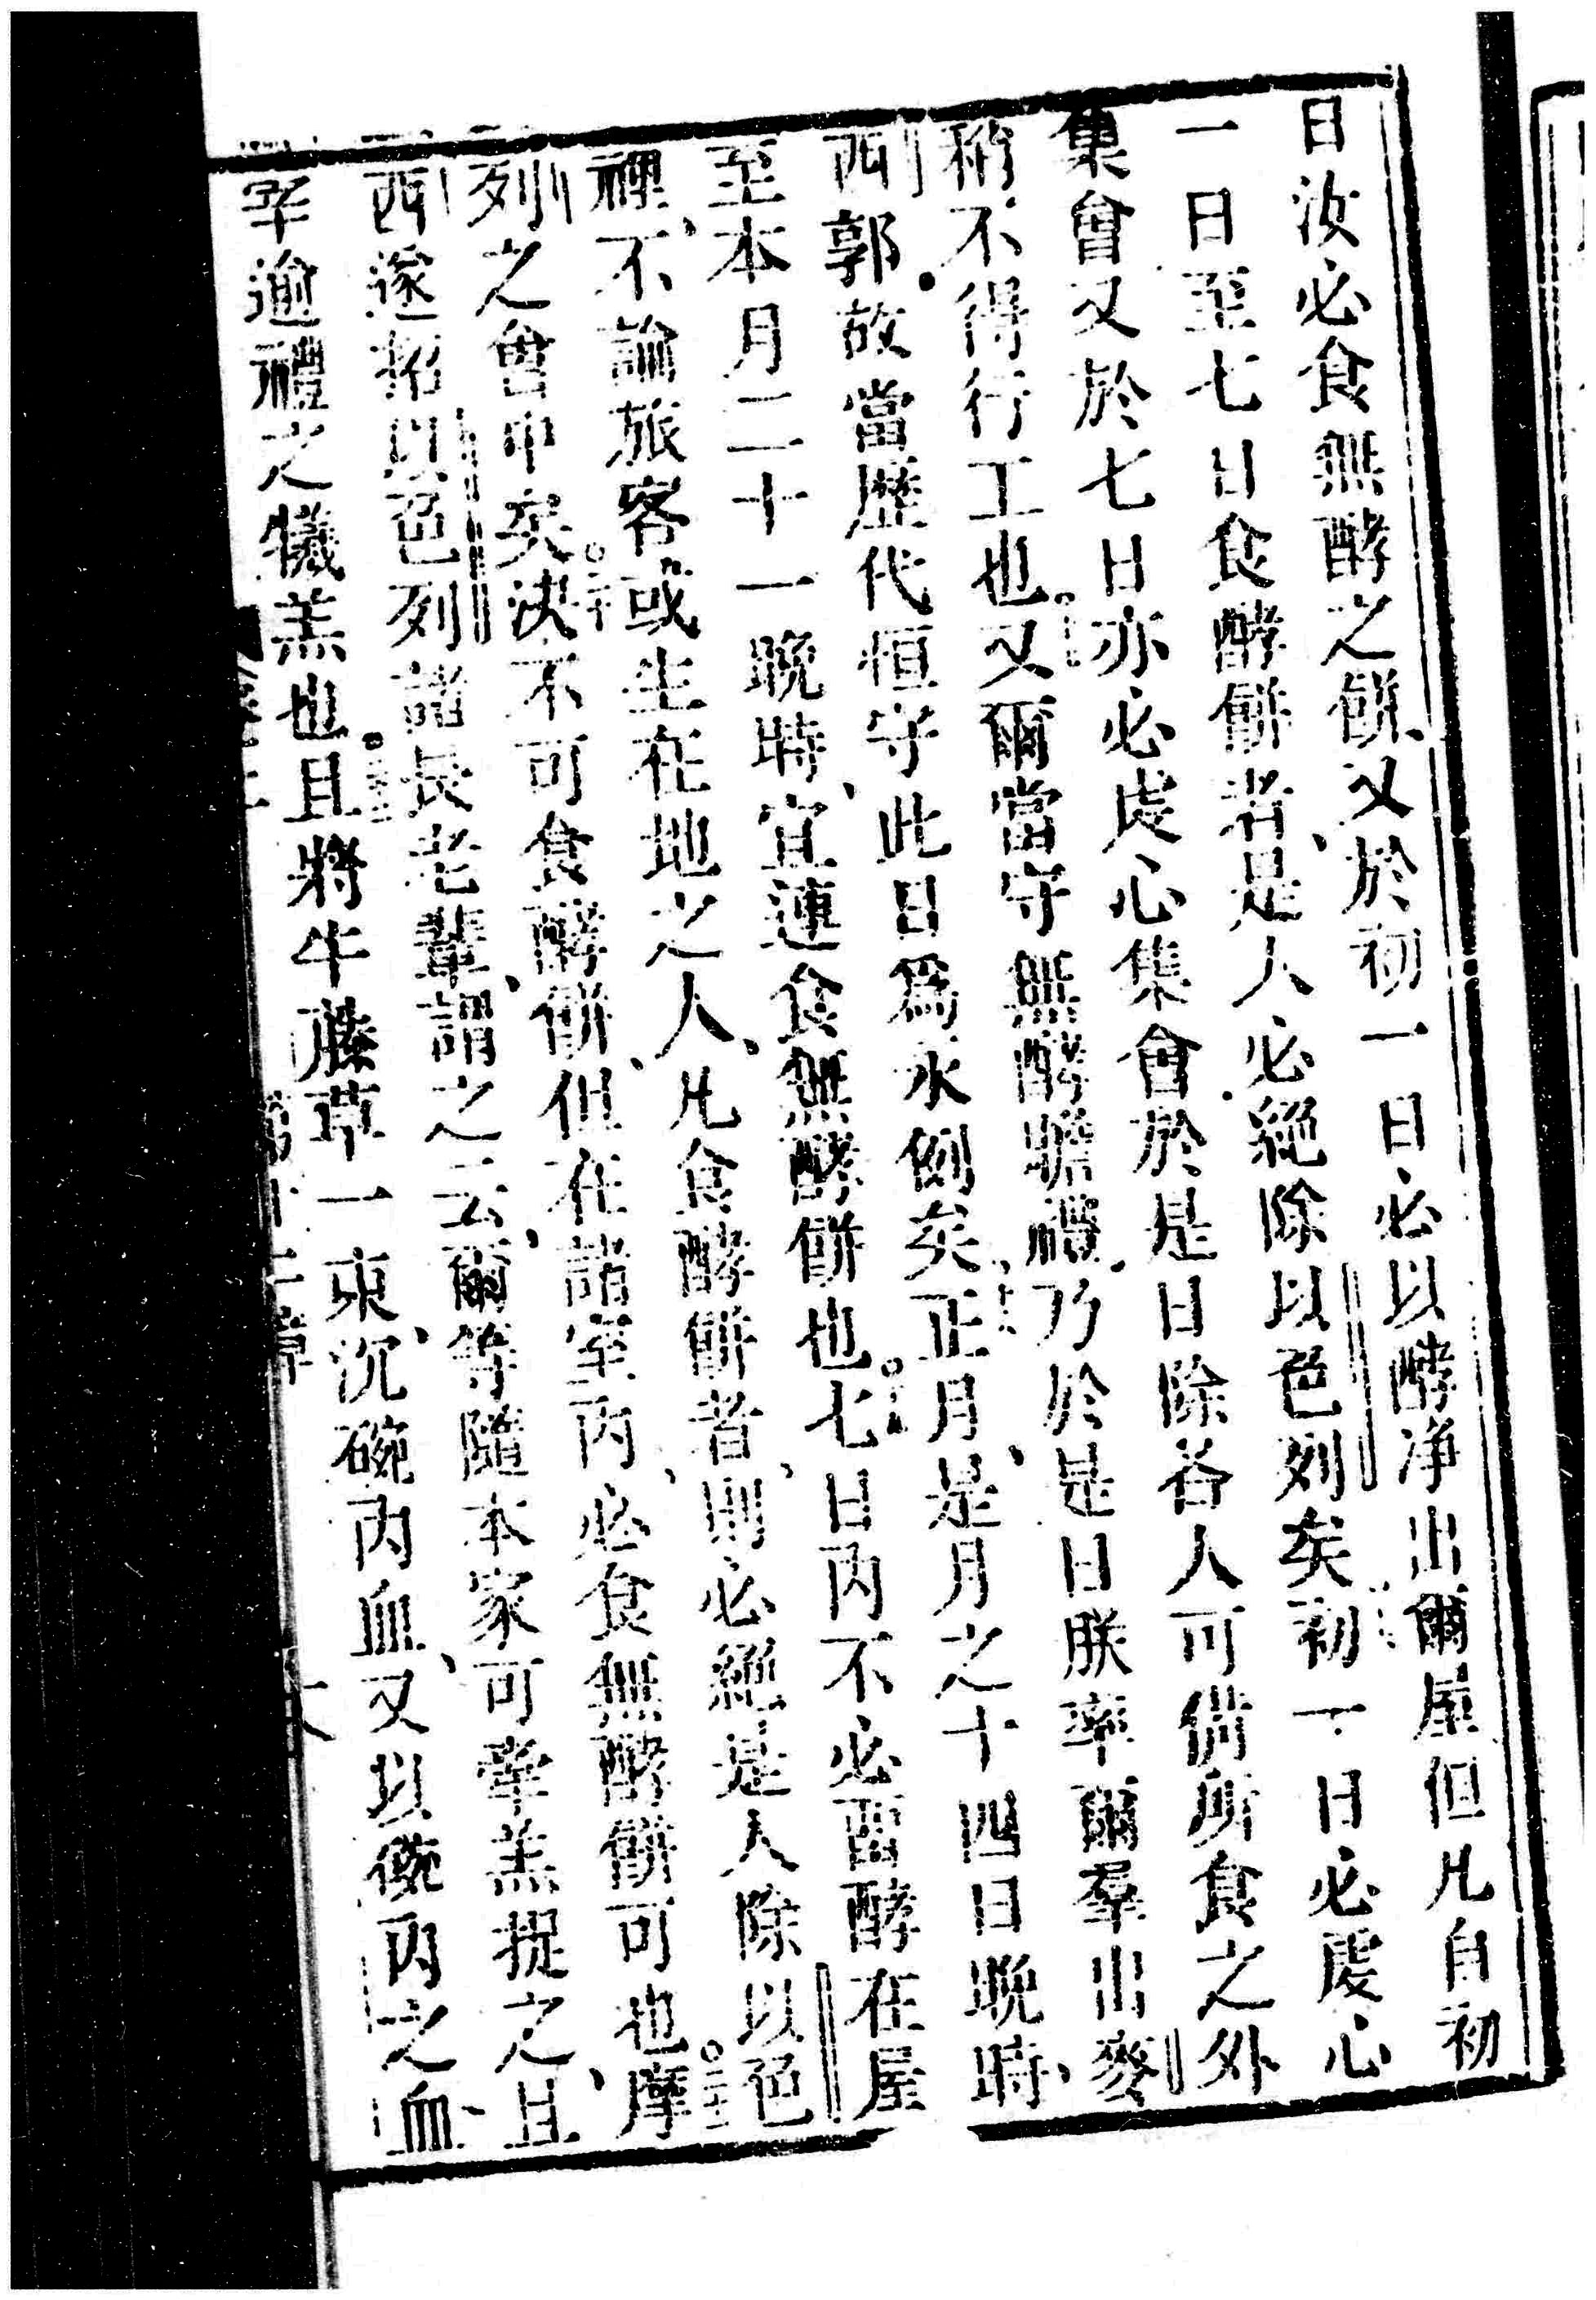 日汝必食無酵之餅又於初一日必以酵净出爾屋但凡自初
一日至七日食酵餅者是人必絕除以色列矣初一日必虔心
集會又於七日亦必虔心集會於是日除各人可備所食之外
稍不得行工也又爾當守無酵瞻禮乃於是日朕率爾羣出麥
西郭故當歷代恒守此日爲永例矣正月是月之十四日晚時
至本月二十一晚時宜連食無酵餅也七日內不必畱酵在屋
裡不論旅客或生在地之人凡食酵餅者則必絕是人除以色
列之會中矣決不可食酵餅但在諸室內必食無酵餅可也摩
西遂招以色列諸長老輩謂之云爾等隨本家可牽羔捉之且
宰逾禮之犧羔也且將牛膝草一束沉碗內血又以碗內之血